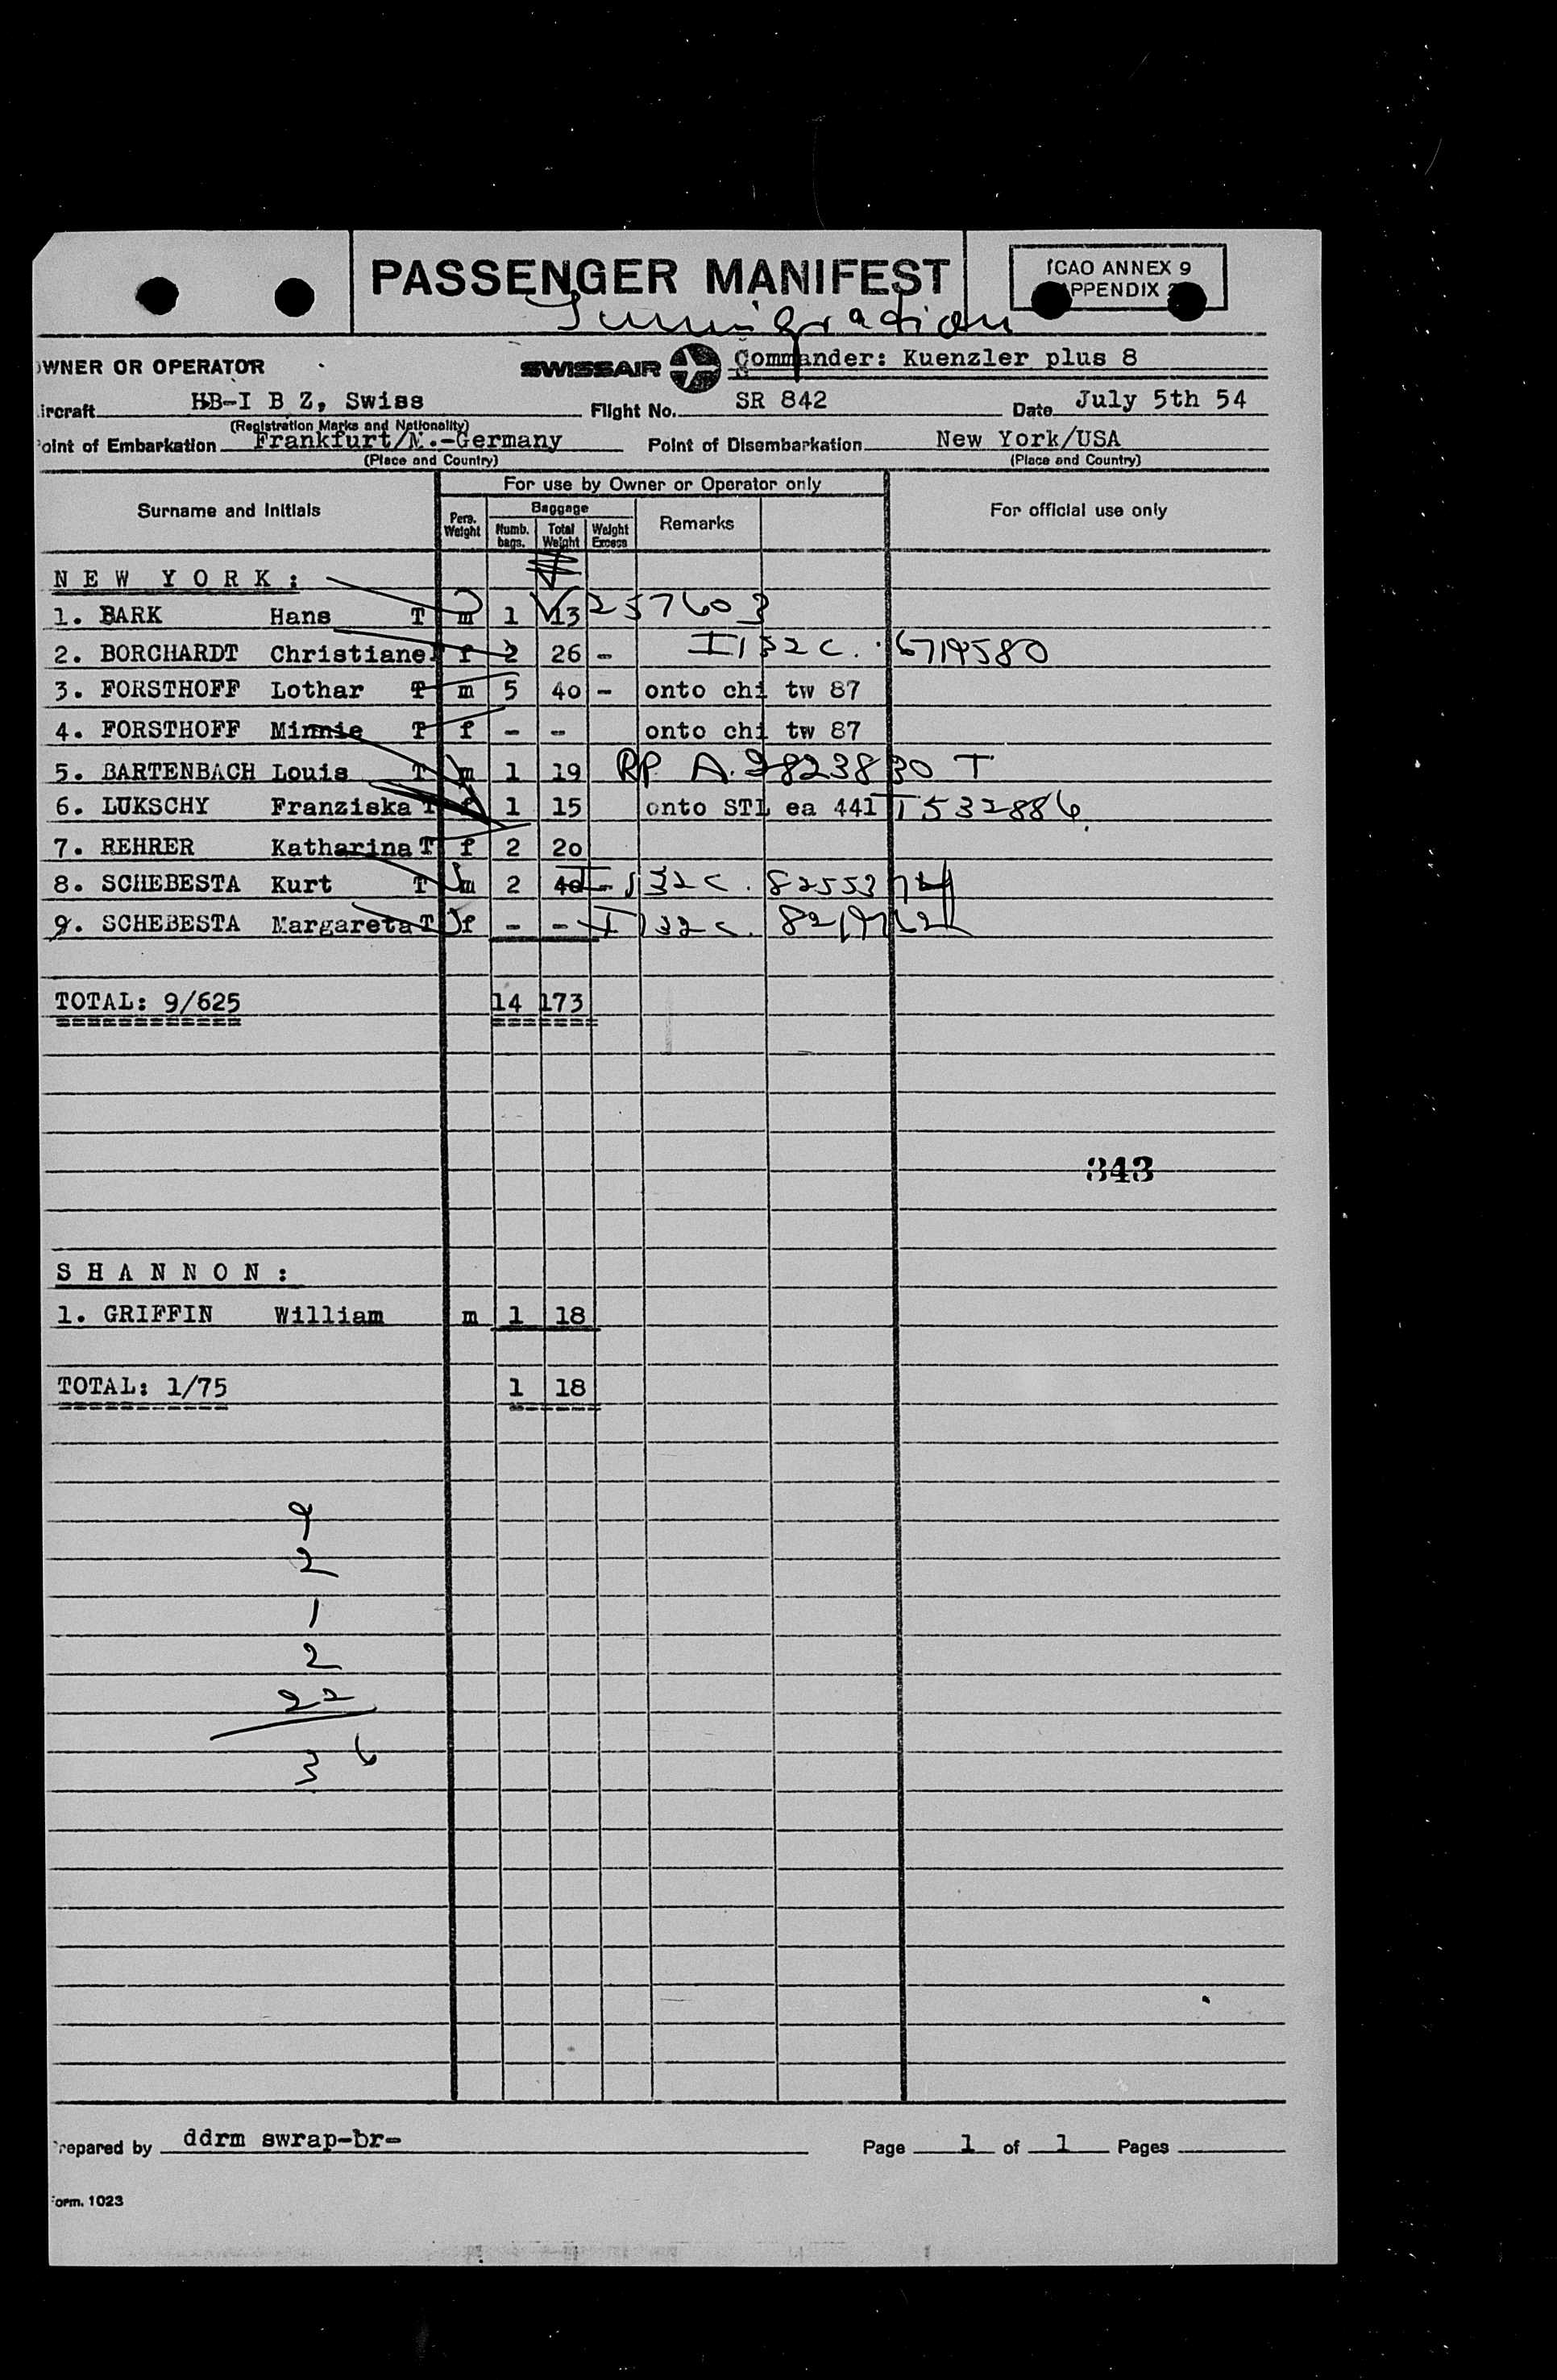 PASSENGER MANIFEST
ICAO ANNEX 9
APPENDIX
Immigration
OWNER OR OPERATOR SWISSAIR Commander: Kuenzler plus 8
ircraft HB-I B Z, Swiss Flight No. SR 842 Date July 5th 54
(Registration Marks and Nationality)
oint of Embarkation Frankfurt/M.-Germany Point of Disembarkation New York/USA
(Place and Country) (Place and Country)
For use by Owner or Operator only
Surname and Initials Pers. Weight Baggage Numb. bags. Total Weight Weight Excess Remarks For official use only
N E W Y O R K :
1. BARK Hans T m 1 13 257603
2. BORCHARDT Christiane f 2 26 - I132C. 6719580
3. FORSTHOFF Lothar T m 5 40 - onto chi tw 87
4. FORSTHOFF Minnie T f - - onto chi tw 87
5. BARTENBACH Louis T m 1 19 RP A. 9823830 T
6. LUKSCHY Franziska T f 1 15 onto STL ea 441 T532886
7. REHRER Katharina T f 2 20
8. SCHEBESTA Kurt T m 2 40 - I132C.
9. SCHEBESTA Margareta T f - - I132C.
TOTAL: 9/625 14 173
343
S H A N N O N :
1. GRIFFIN William m 1 18
TOTAL: 1/75 1 18
9
2
1
2
22
36
repared by ddrm swrap-br- Page 1 of 1 Pages
orm. 1023